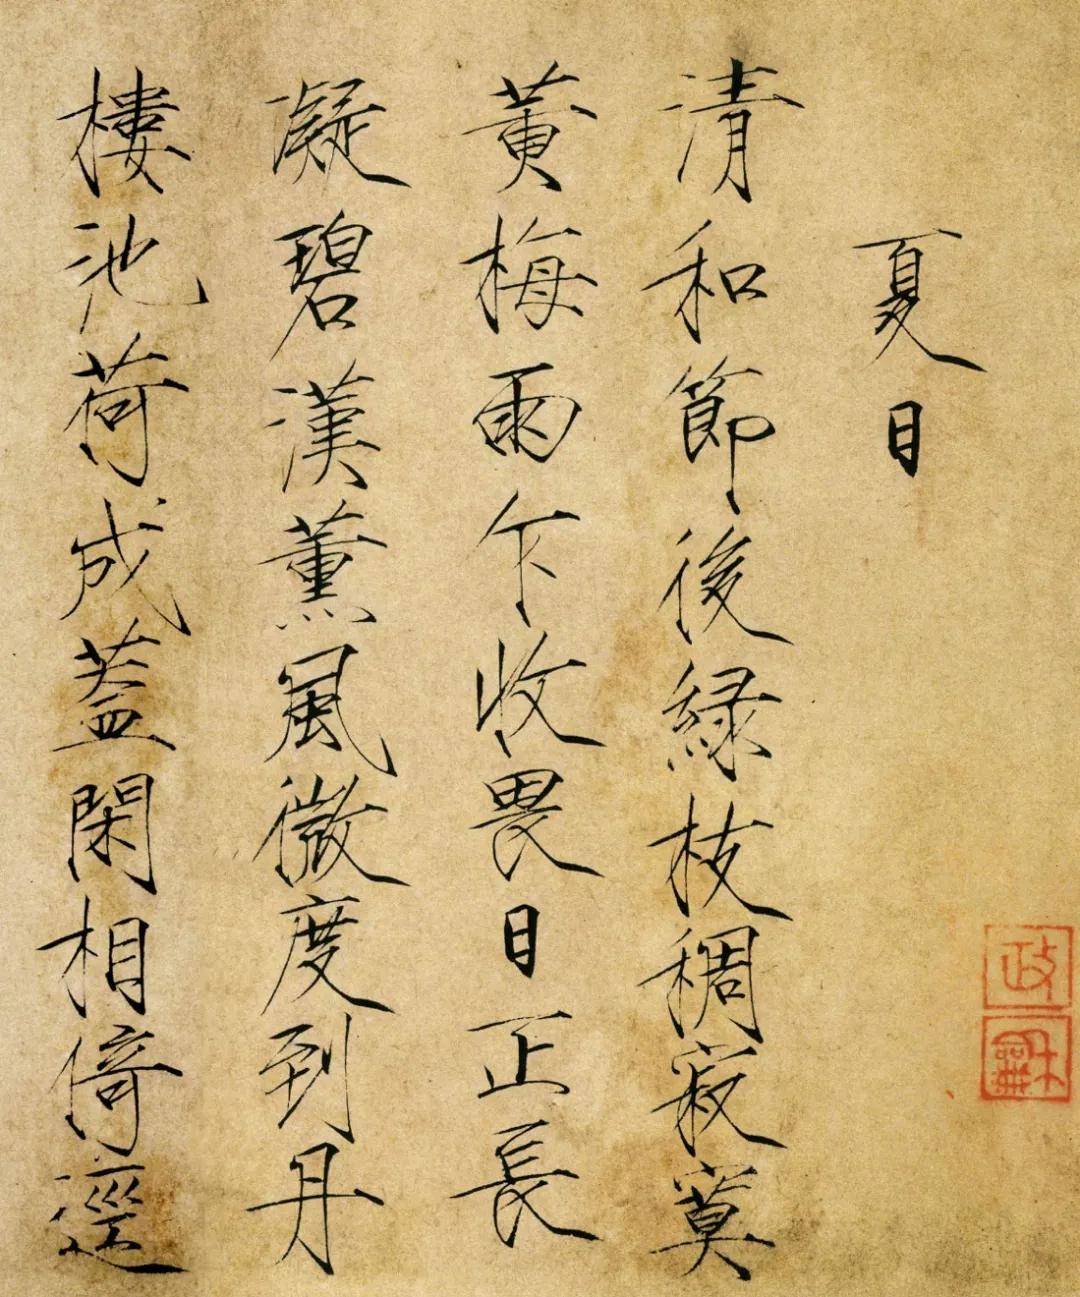 夏日
清和節後緑枝稠寂寞
黄梅雨乍收畏日正長
凝碧漢薰風微度到丹
樓池荷成蓋閑相倚逕
政
龢